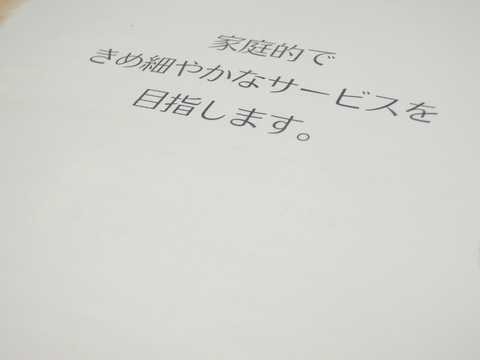 家庭的で
きめ細やかなサービスを
目指します。